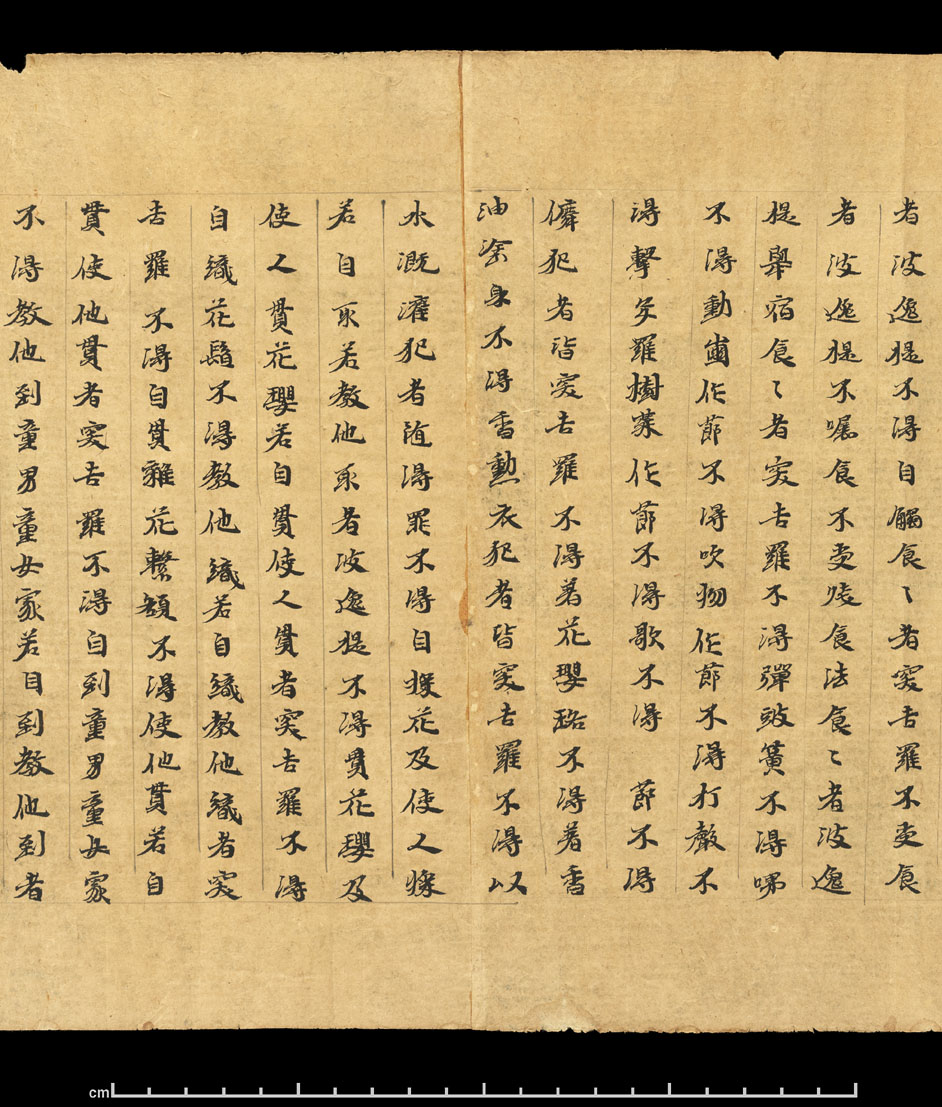 者波逸提不得自觸食〻者突吉羅不受食
者波逸提不囑食不受殘食法食〻者波逸
提舉宿食〻者突吉羅不得彈䟦簧不得嘯
不得動齒作節不得吹物作節不得打聲不
得擊多羅樹葉作節不得歌不得 節不得
儛犯者皆突吉羅不得著花瓔珞不得著香
油塗身不得香勳衣犯者皆突吉羅不得以
水溉灌犯者随得罪不得自採花及使人採
若自取若教他取者波逸提不得貫花瓔及
使人貫花瓔若自貫使人貫者突吉羅不得
自織花鬘不得教他織若自織教他織者突
吉羅不得自貫雜花繫頞不得使他貫若自
貫使他貫者突吉羅不得自到童男童女家
不得教他到童男童女家若自到教他到者